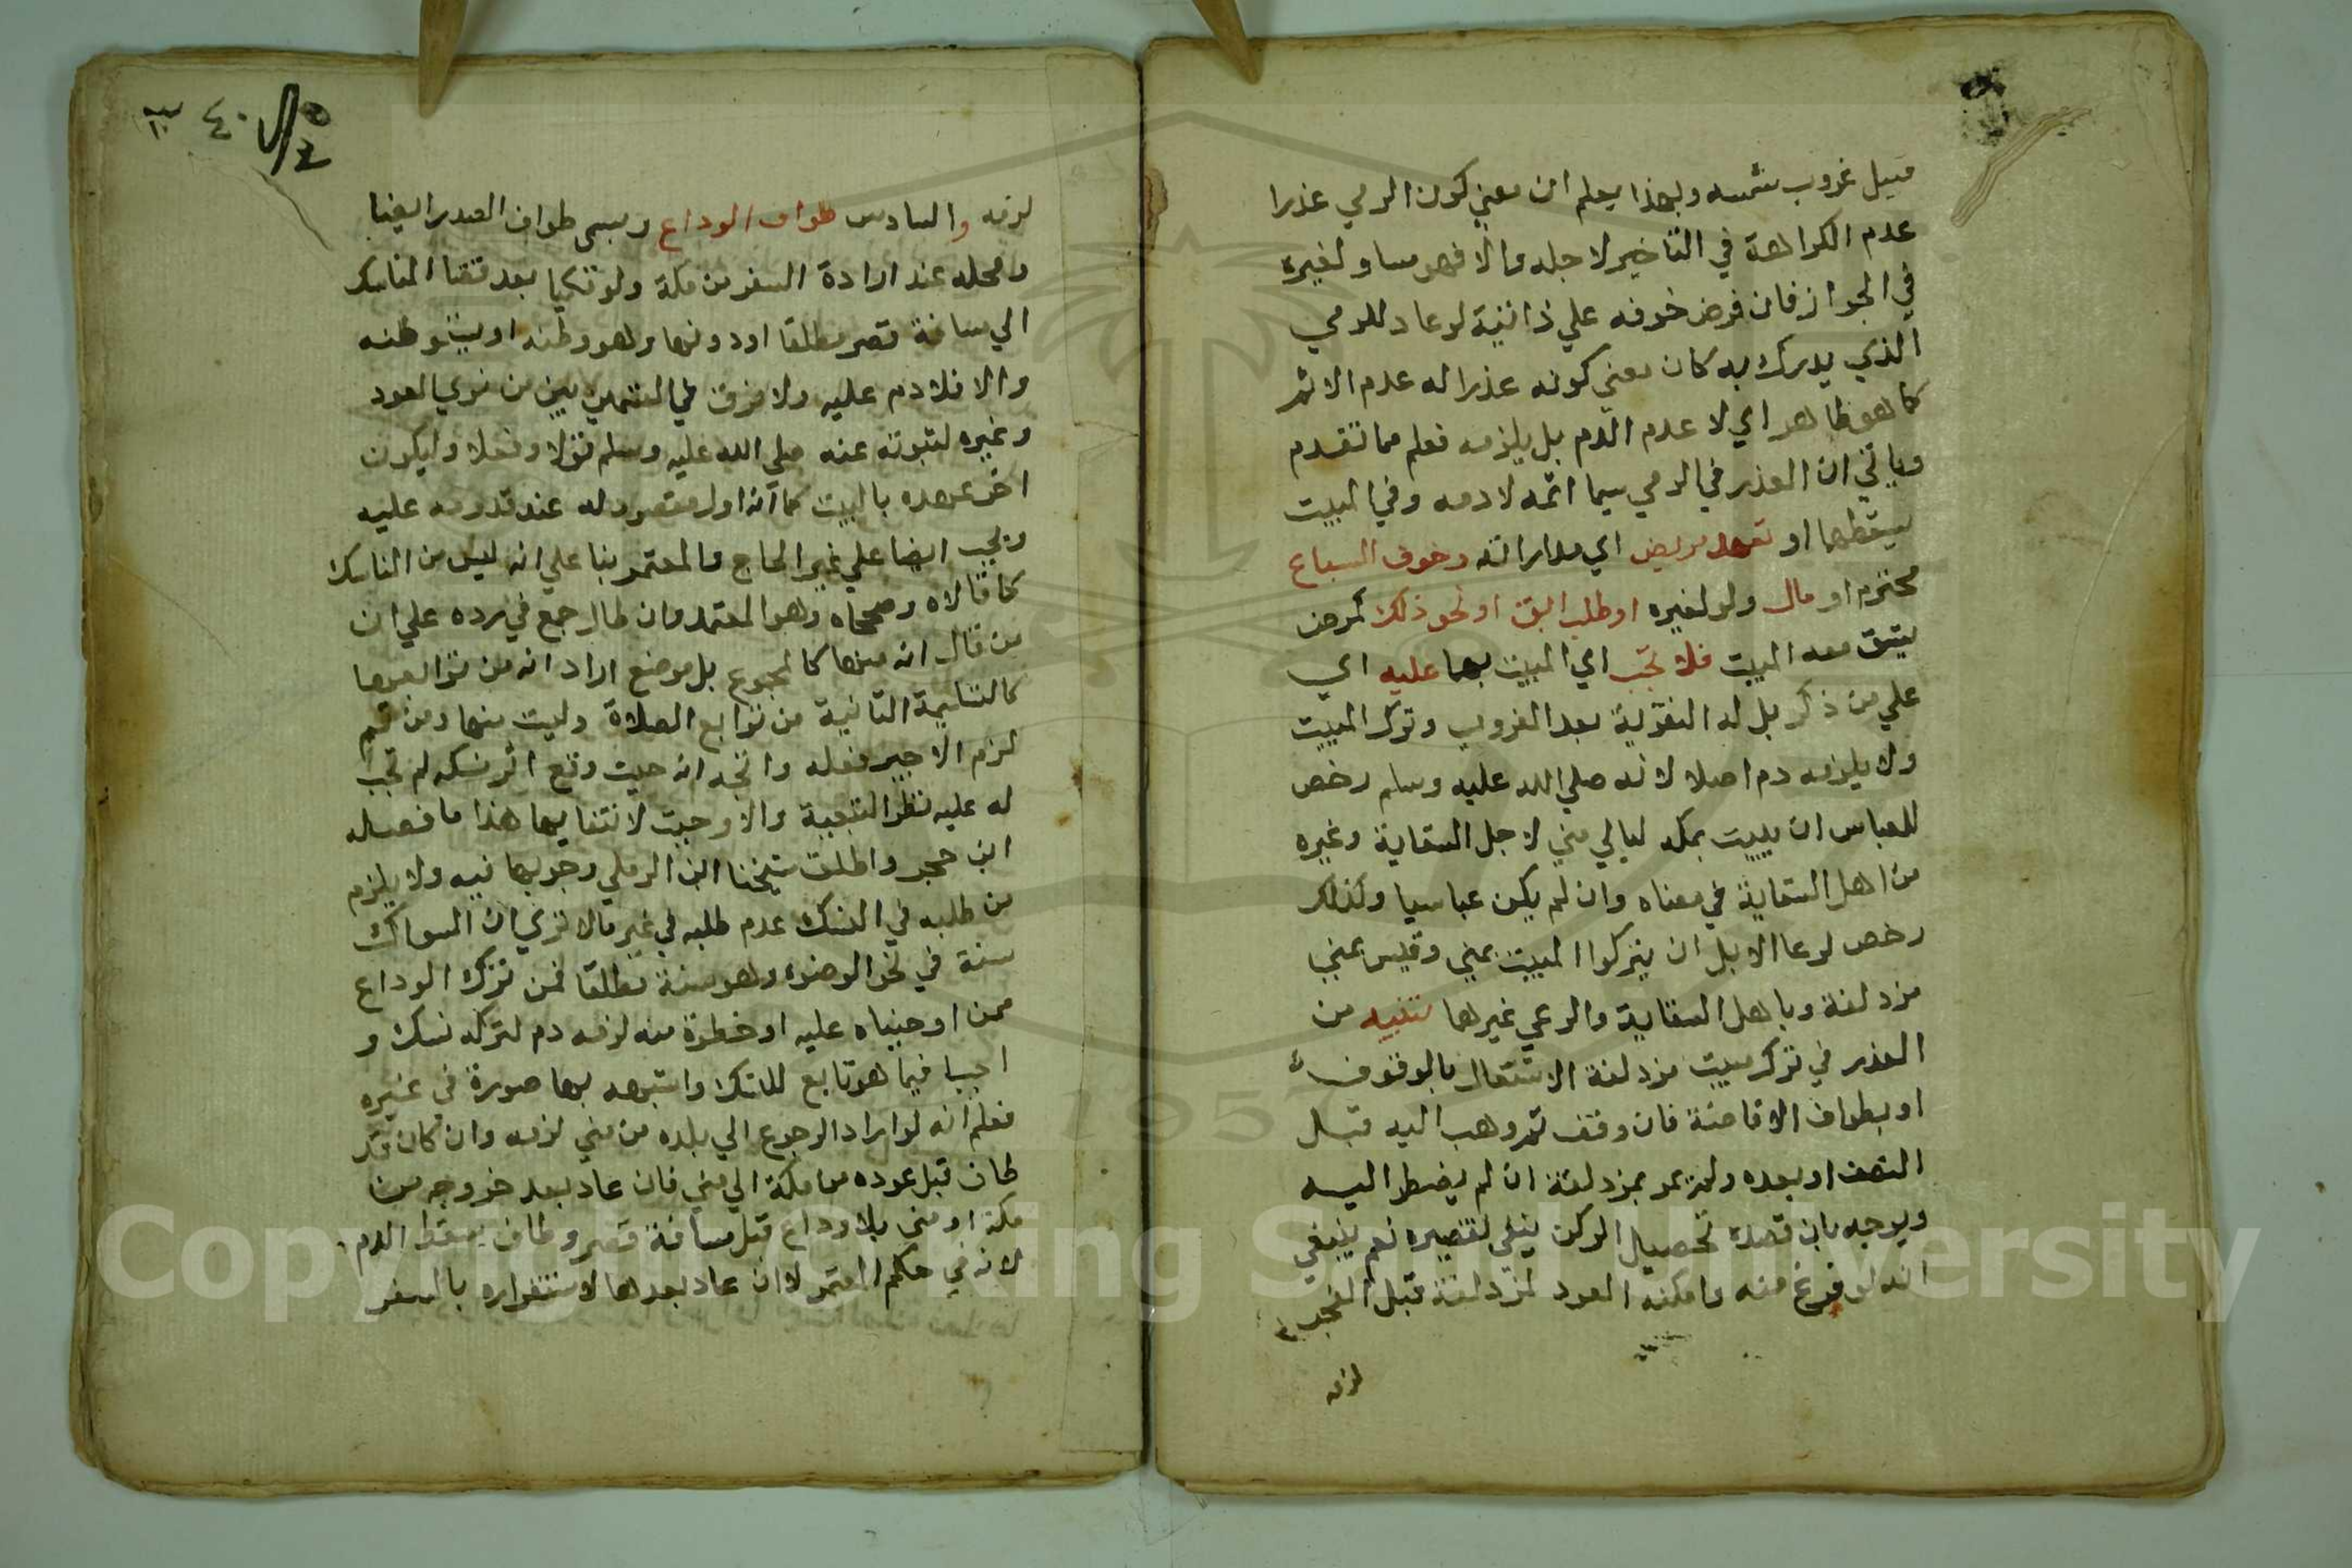 قبيل غروب شمسه وبهذا يعلم ان معني كون الرمي عذرا
عدم الكراهة في التاخير لاجله والا فهو مساو لغيره
في الجواز فان فرض خوفه علي ذا نية لو عاد للرمي
الذي يدرك به كان معني كونه عذرا له عدم الاثم
كما هو ظاهر اي لا عدم الدم بل يلزمه فعلم مما تقدم
وياتي ان العذر في الرمي سيما اثمه لا دمه وفي المبيت
يسقطهما او تعهد مريض اي مداراته وخوف السباع
محترم او مال ولو لغيره او طلب ابق او نحو ذلك كمرض
يشق معه المبيت فلا تجب اي المبيت بها عليه اي
علي من ذكر بل له النفر بعد الغروب وترك المبيت
ولا يلزمه دم اصلا لانه صلي الله عليه وسلم رخص
للعباس ان يبيت بمكة ليالي مني لاجل السقاية وغيره
من اهل السقاية في معناه وان لم يكن عباسيا وكذلك
رخص لرعا الابل ان يتركوا المبيت بمني وقيس بمني
مزدلفة وباهل السقاية والرعي غيرها تنبيه من
العذر في ترك مبيت مزدلفة الاشتغال بالوقوف
او بطواف الافاضة فان وقف ثم وهب اليه قبل
النصف او بعده ولم يمر بمزدلفة ان لم يضطر اليه
ويوجه بان قصده تحصيل الركن ينفي تقصيره نعم ينبغي
انه لو فرغ منه وامكنه العود لمزدلفة قبل الفجر
لزمه
٤٠
لزمه والسادس طواف الوداع ويسمى طواف الصدر ايضا
ومحله عند ارادة السفر من مكة ولو مكيا بعد قضا المناسك
الي مسافة قصر مطلقا او دونها وهو وطنه او يتوطنه
والا فلا دم عليه ولا فرق في القسمين بين من نوي العود
وغيره لثبوته عنه صلي الله عليه وسلم قولا وفعلا وليكون
اخر عهده بالبيت كما انه اول مقصود له عند قدومه عليه
ويجب ايضا علي غير الحاج والمعتمر بنا علي انه ليس من المناسك
كما قالاه وصححاه وهو المعتمد وان طال جمع في رده علي ان
من قال انه منها كالمجموع بل موضع اراد انه من توابعها
كالتسليمة الثانية من توابع الصلاة وليت منها ومن ثم
لزم الاجير فعله واتجه انه حيث وقع اثر نسكه لم تجب
له عليه نظرا للتبعية والا وجبت لانتفايها هذا ما فصله
ابن حجر واطلق شيخنا ابن الرملي وجوبها نيه ولا يلزم
من طلبه في النسك عدم طلبه في غير مالا تري ان السواك
سنة في نحو الوضوء وهو سنة مطلقا فمن ترك الوداع
ممن اوجبناه عليه او خطوة منه لزمه دم لتركه نسكا و
اجبا فيما هو تابع للنسك واشبهه بها صورة في غيره
فعلم انه لو اراد الرجوع الي بلده من مني لزمه وان كان قد
طاف قبل عوده من مكة الي مني فان عاد بعد خروجه من
مكة او مني بلا وداع قبل مسافة قصر وطاف سقط الدم
لانه في حكم المقيم لا ان عاد بعدها لاستقراره بالسفر